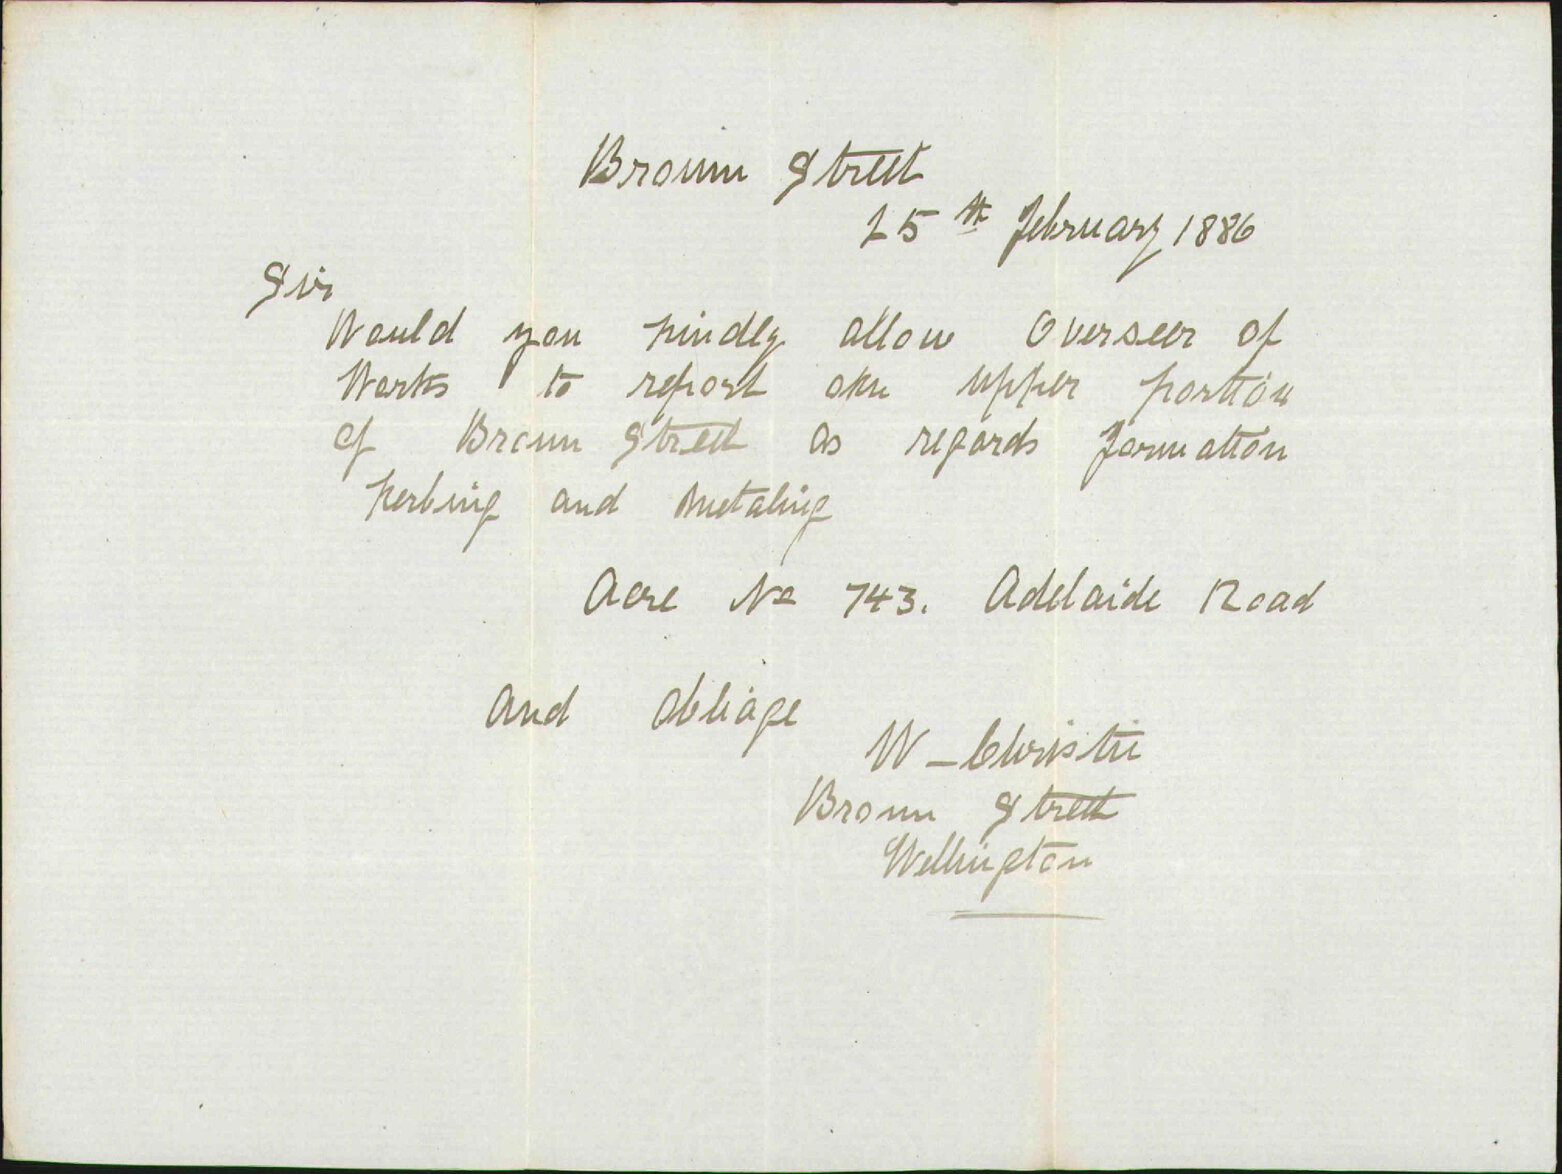 Brown Street
25th February 1886
Sir
Would you kindly allow Overseer of
Works to report on upper portion
of Brown Street as regards formation
kerbing and metaling
Acre No 743. Adelaide Road
and obliage
W - Christie
Brown Street
Wellington